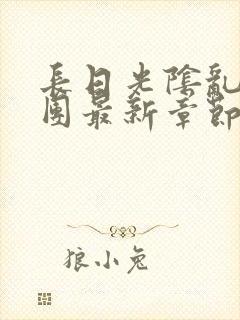 長日光陰亂
團最新章節
狼小兔